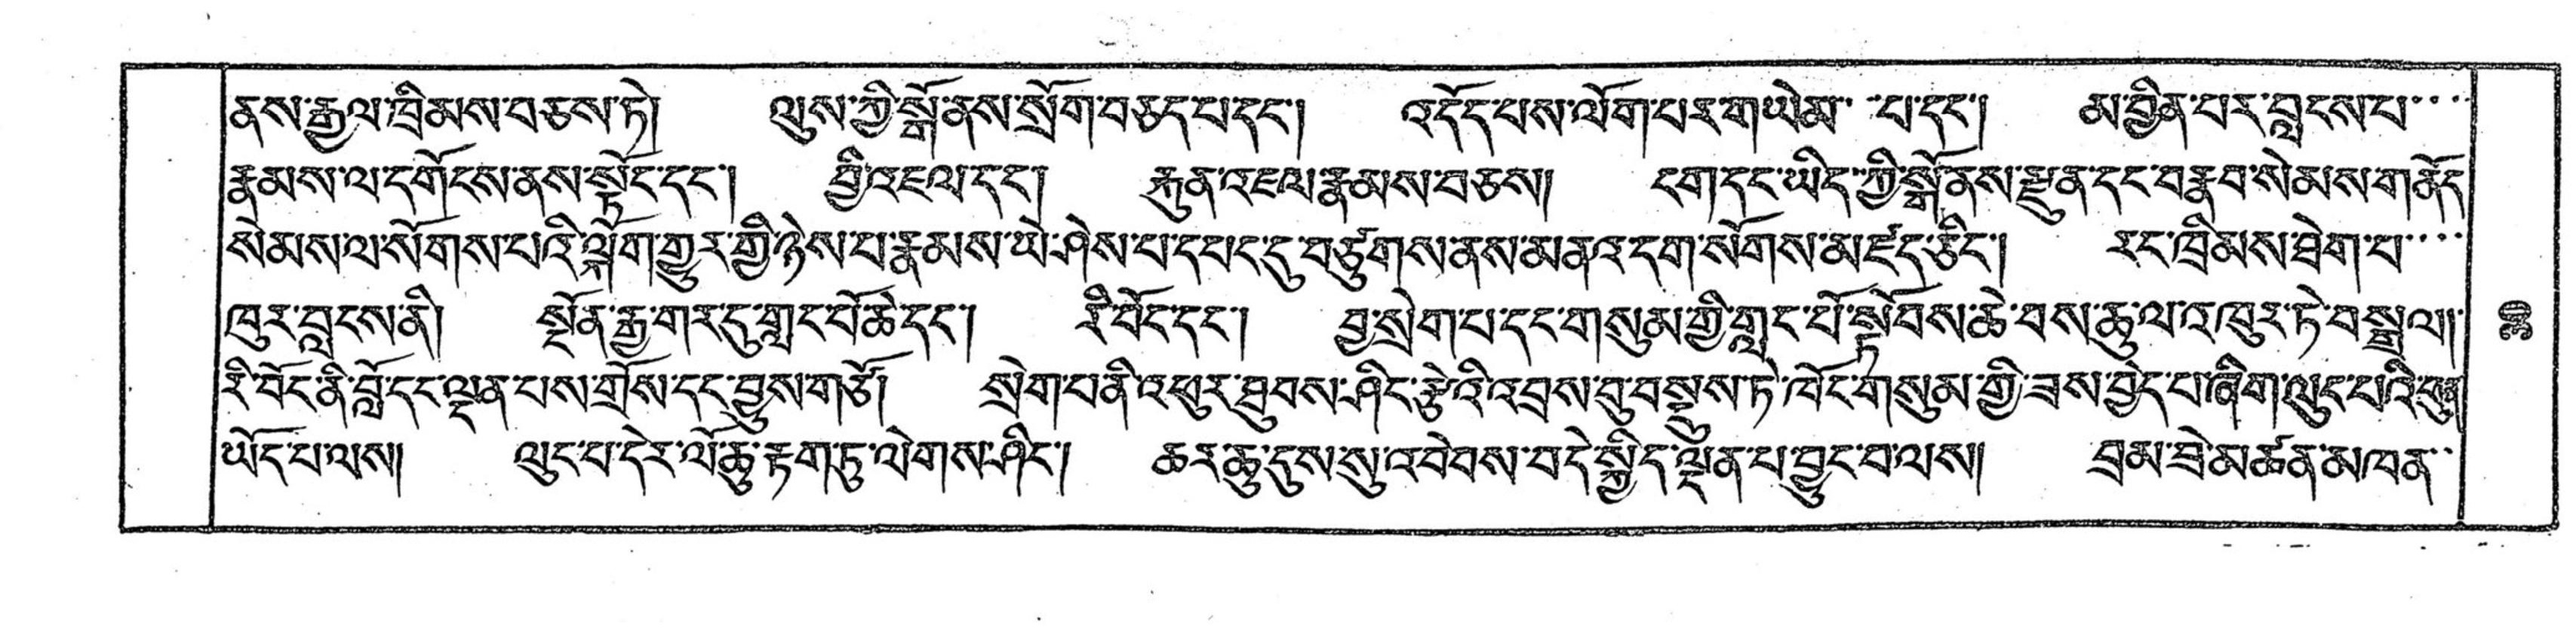 ནས་རྒྱལ་ཁྲིམས་བཅས་ཏེ། ལུས་ཀྱི་སྒོ་ནས་སྲོག་བཅད་པ་དང་། འདོད་པས་ལོག་པར་གཡེམ་པ་དང་། མ་བྱིན་པར་བླངས་པ་
རྣམས་ལ་དགོངས་ནས་སྟོང་དང་། བྱི་འཇལ་དང་། རྐུན་འཇལ་རྣམས་བཅས། ངག་དང་ཡིད་ཀྱི་སྒོ་ནས་རྫུན་དང་བརྣབ་སེམས་གནོད་
སེམས་ལ་སོགས་པའི་ལྐོག་གྱུར་གྱི་ཉེས་པ་རྣམས་ཡེ་ཤེས་པ་དཔང་དུ་བཙུགས་ནས་མནའ་དག་སོགས་མཛད་ཅིང་། རང་ཁྲིམས་ཐེག་པ་
ཁུར་བླངས་ནི། སྔོན་རྒྱ་གར་དུ་གླང་པོ་ཆེ་དང་། རི་བོང་དང་། བྱ་སྲེག་པ་དང་གསུམ་གྱི་གླང་པོ་སྟོབས་ཆེ་བས་ཆུ་ལ་འཁུར་ཏེ་བསྒྲལ།
རི་བོང་ནི་བློ་དང་ལྡན་པས་གྲོས་དང་བྱུས་གཙོ། སྲེག་པ་ནི་འཕུར་ཐུབས་ཤིང་རྩེའི་འབྲས་བུ་བསྡུས་ཏེ་ཁོང་གསུམ་གྱི་ཟས་བྱེད་པ་ཞིག་ལུང་པའི་ཕུན་
ཡོད་པ་ལས། ལུང་པ་དེར་ལོ་ཆུ་རྟག་ཏུ་ལེགས་ཤིང་། ཆར་ཆུ་དུས་སུ་འབེབས་བདེ་སྐྱིད་ལྡན་པ་བྱུང་བ་ལས། བྲམ་ཟེ་མཚན་མཁན་